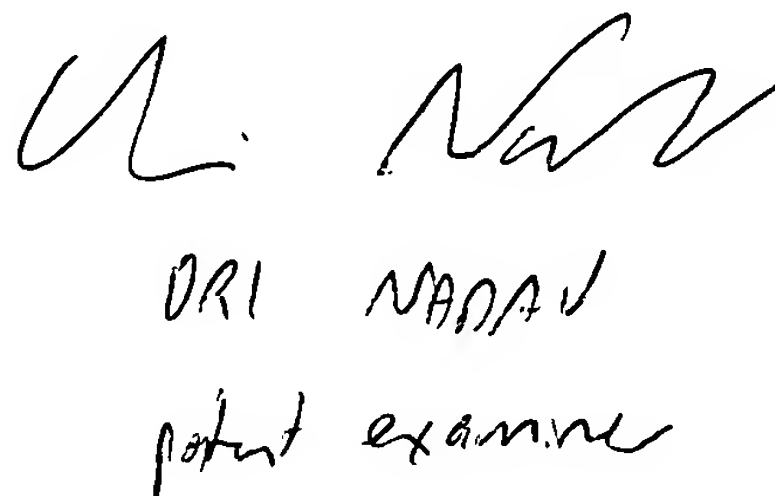 Ori Nadav
ORI NADAV
patent examiner